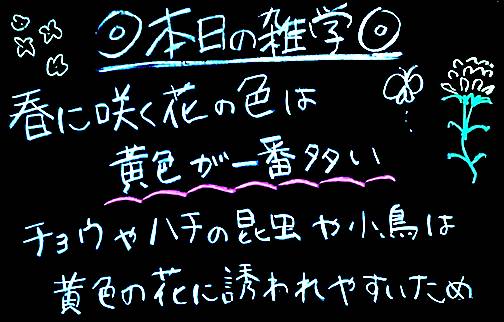 ◎本日の雑学◎
春に咲く花の色は
黄色が一番多い
チョウやハチの昆虫や小鳥は
黄色の花に誘われやすいため